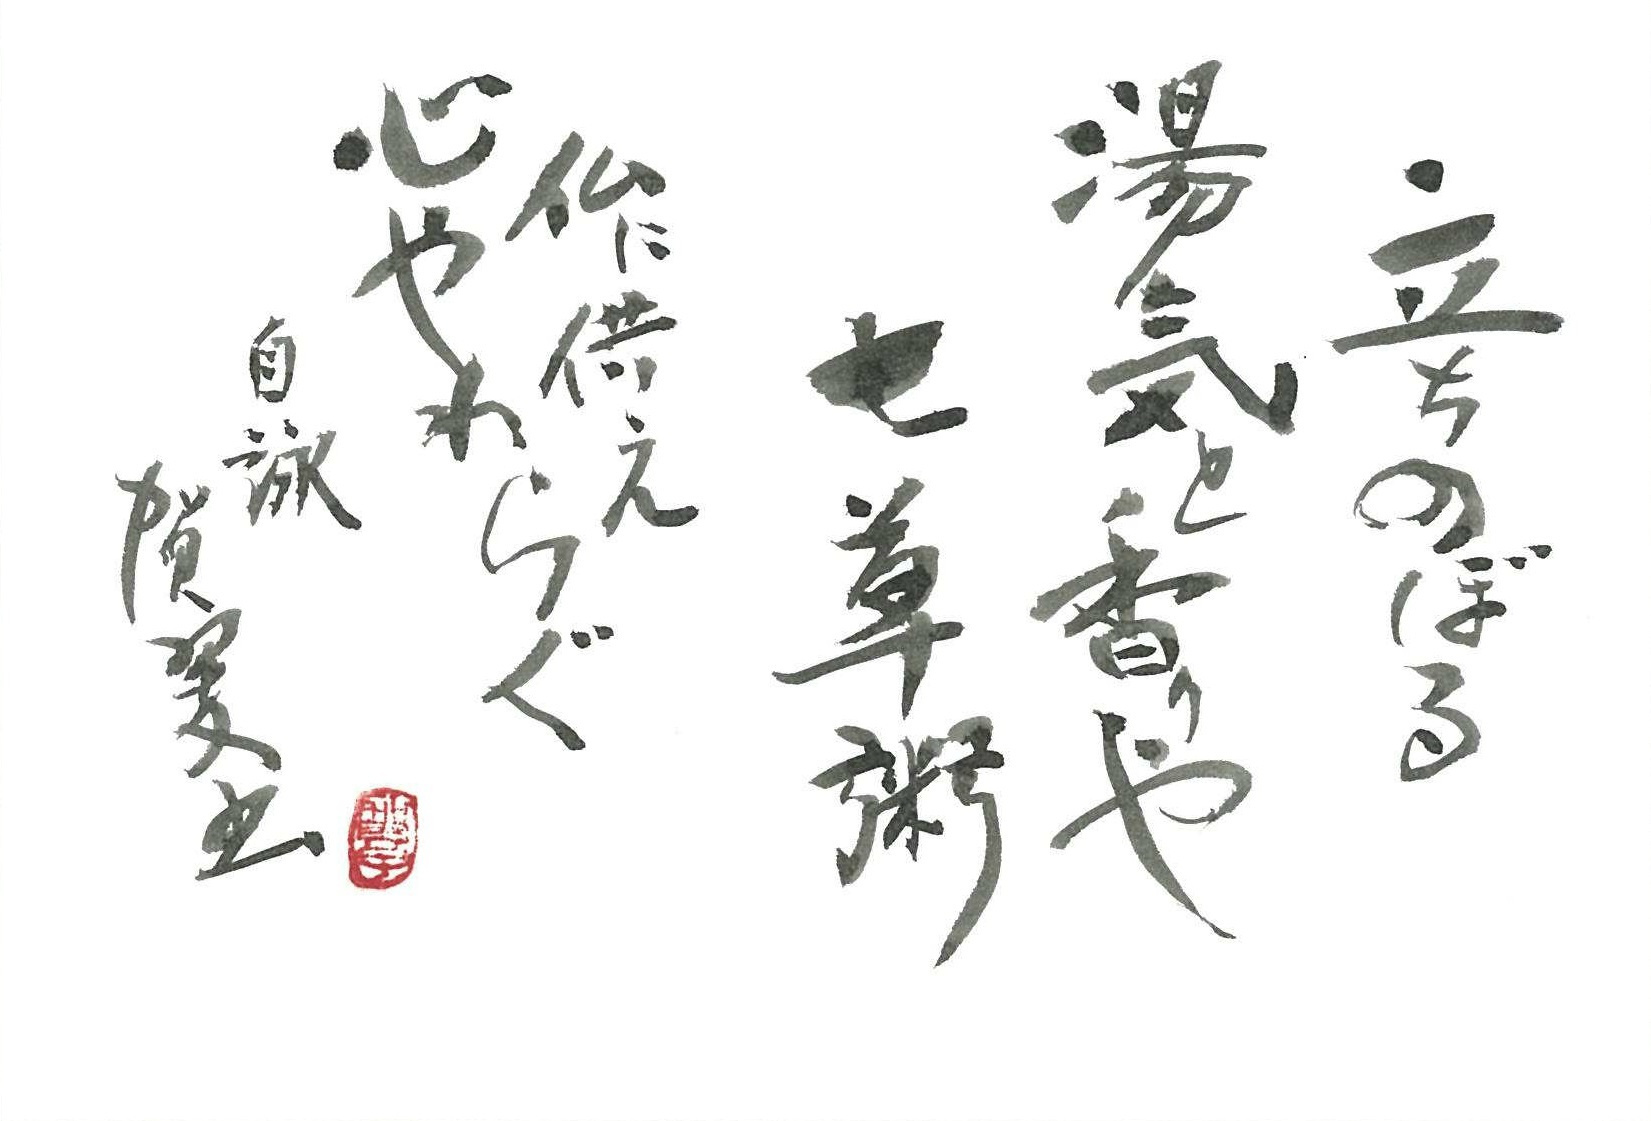 立ちのぼる
湯気と香りや
七草粥
仏に供え
心やわらぐ
自詠
賀翠書